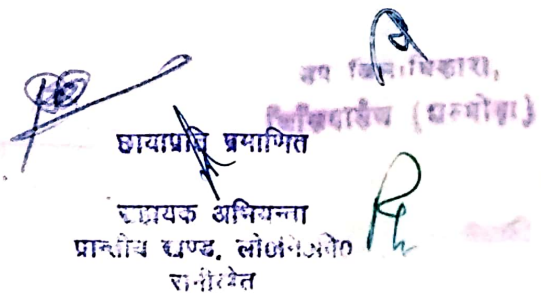 उप जिलाधिकारी,
(अल्मोड़ा)
छायाप्रति प्रमाणित
सहायक अभियन्ता
प्रान्तीय खण्ड, लो०नि०वि०
रानीखेत